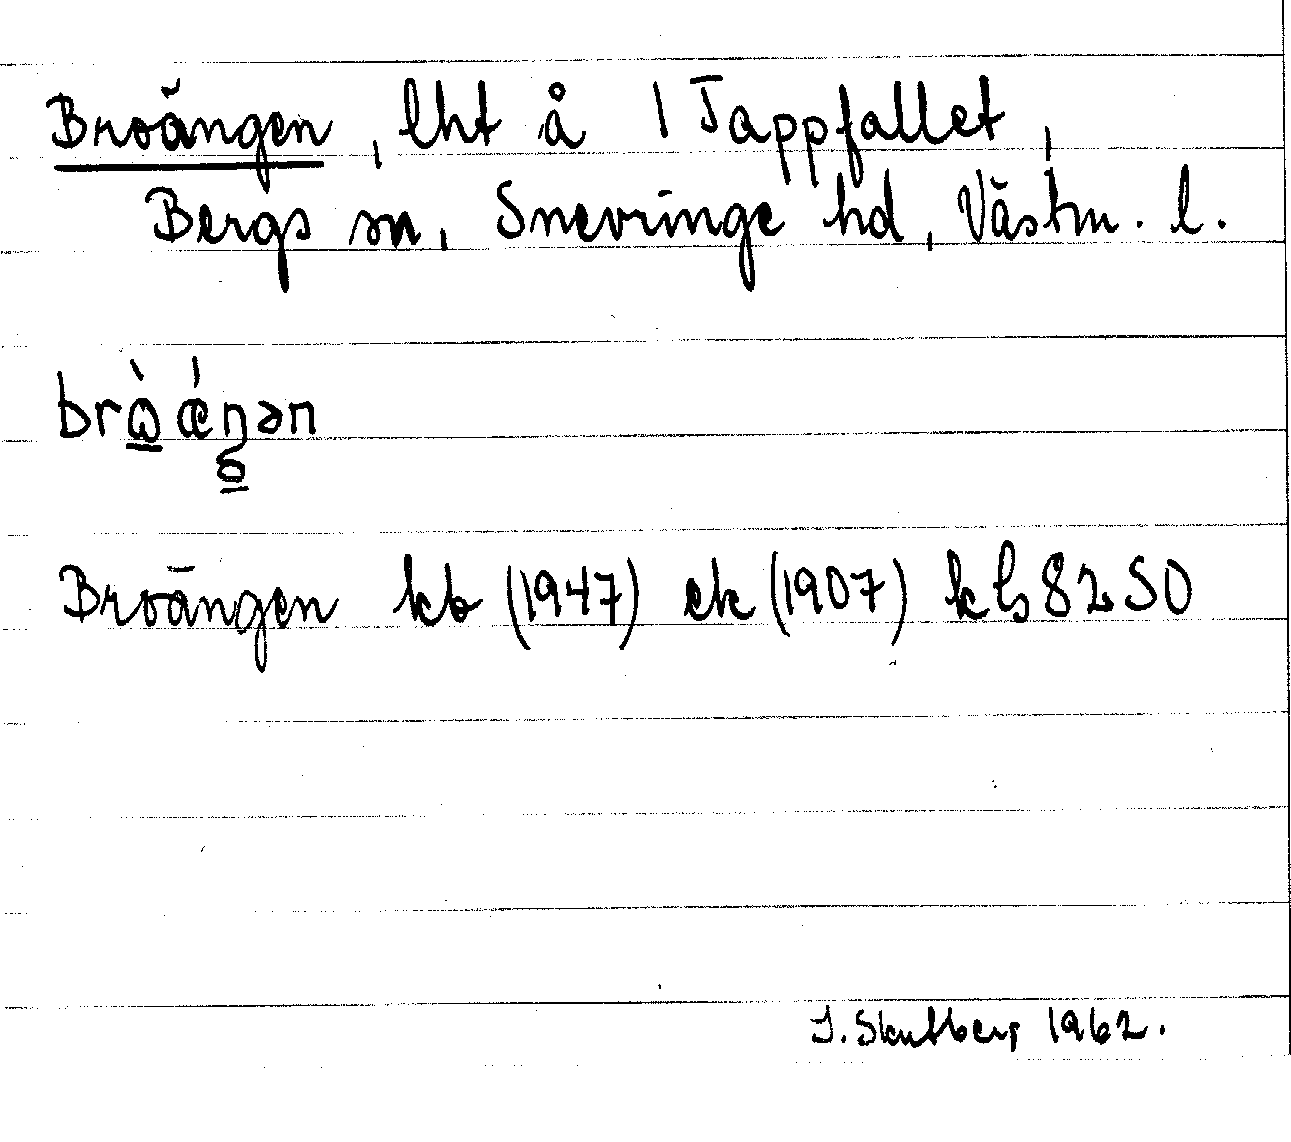 Broängen, lht å 1 Tappfallet,
Bergs sn, Snevringe hd, Västm. l.
brὼ ǽŋən
Broängen kb (1947) ek (1907) kls 8250
1962.